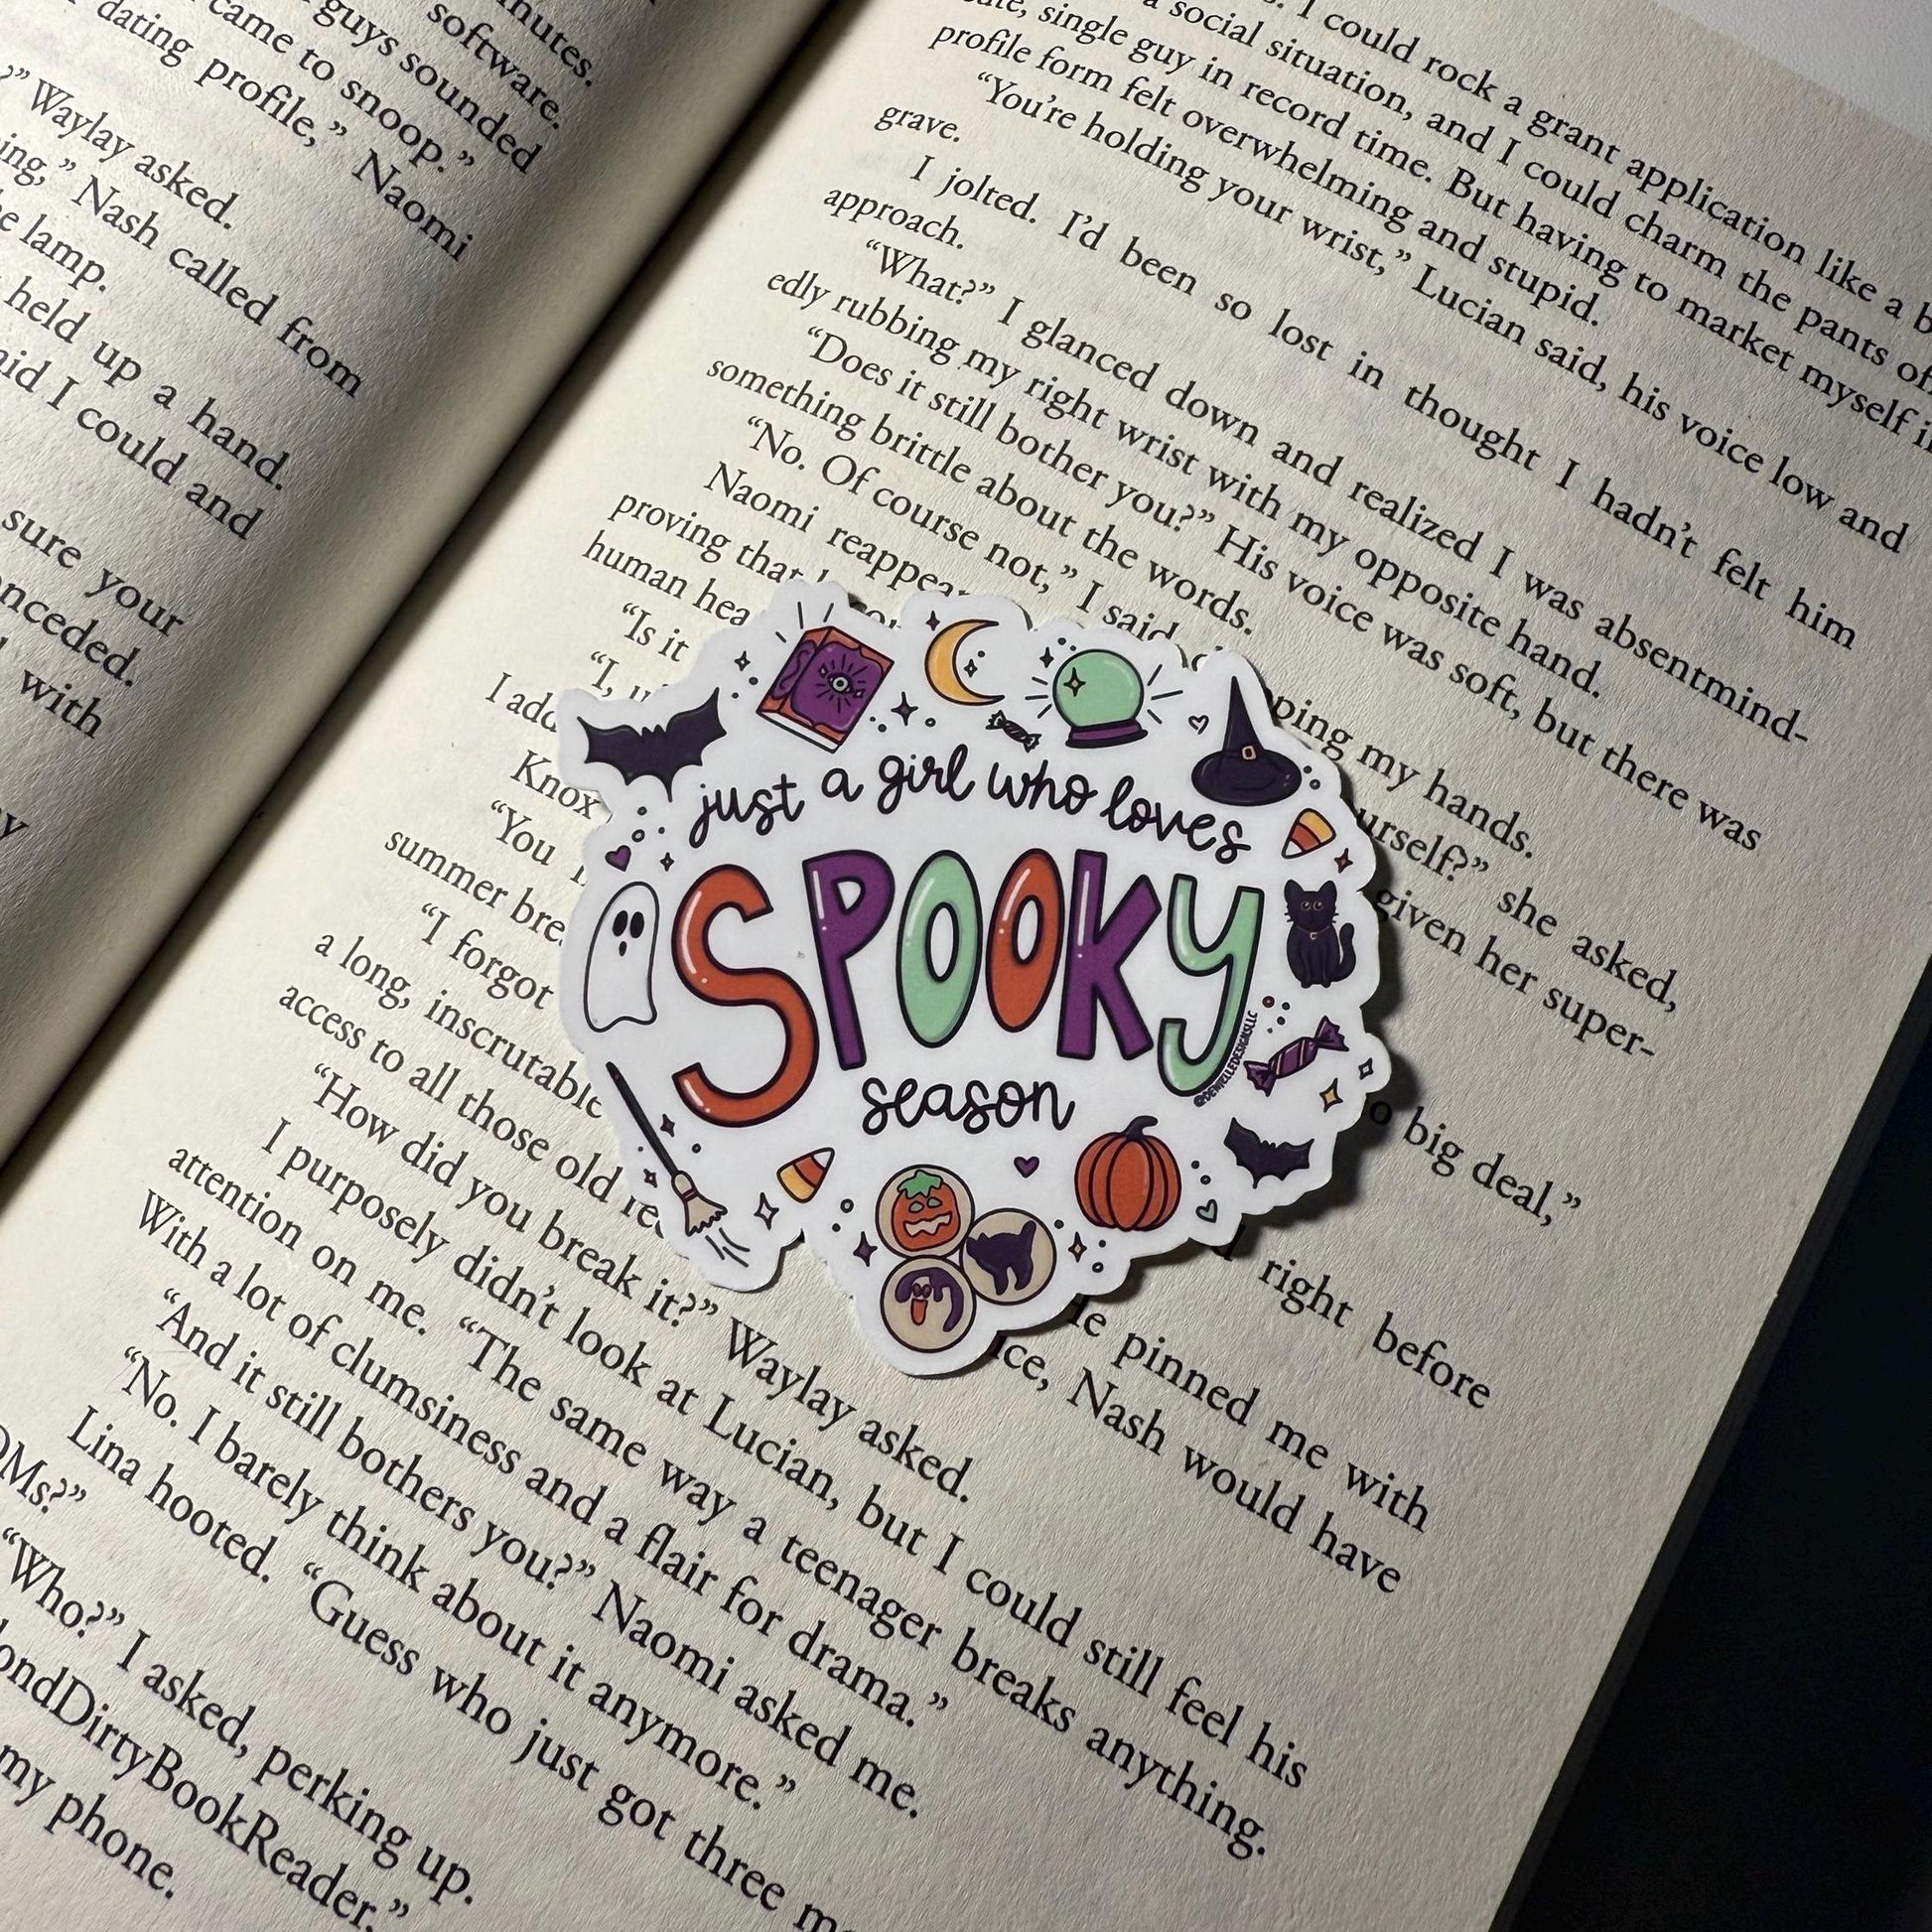 minutes.
software.
guys sounded
came to snoop.”
dating profile,” Naomi
Waylay asked.
Nash called from
lamp.
held up a hand.
I could and
sure your
with
I could rock a grant application like a
a social situation, and I could charm the pants
single guy in record time. But having to market myself
profile form felt overwhelming and stupid.
“You’re holding your wrist,” Lucian said, his voice low and
grave.
I jolted. I’d been so lost in thought I hadn’t felt him
approach.
“What?” I glanced down and realized I was absentmind-
edly rubbing my right wrist with my opposite hand.
“Does it still bother you?” His voice was soft, but there was
something brittle about the words.
“No. Of course not,” I said
ping my hands.
Naomi reappea
urself?” she asked,
proving that
given her super-
human hea
“Is it
o big deal,”
“I,
I add
right before
Knox
“You
pinned me with
summer bre
ice, Nash would have
“I forgot
a long, inscrutable
access to all those old re
“How did you break it?” Waylay asked.
I purposely didn’t look at Lucian, but I could still feel his
attention on me. “The same way a teenager breaks anything.
With a lot of clumsiness and a flair for drama.”
“And it still bothers you?” Naomi asked me.
“No. I barely think about it anymore.”
Lina hooted. “Guess who just got three
DMs?”
“Who?” I asked, perking up.
ondDirtyBookReader.”
my phone.
just a girl who loves
SPOOKY
season